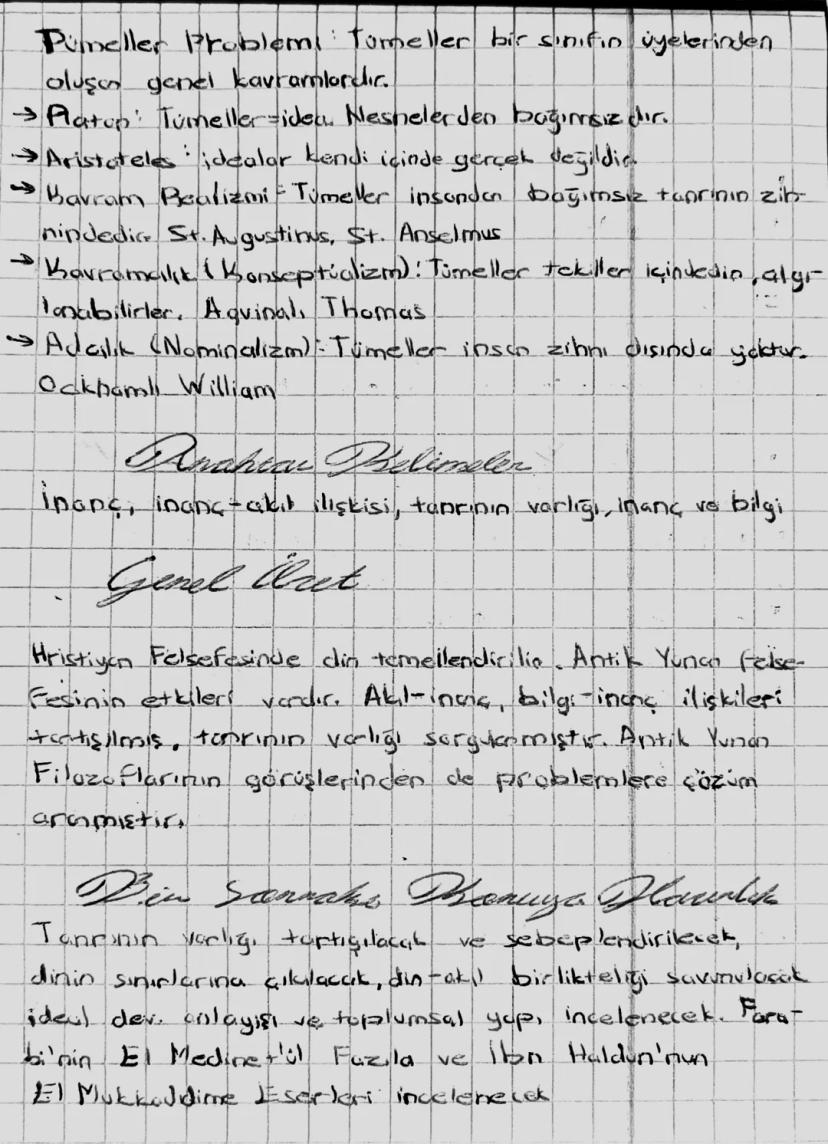 Tümeller Problemi: Tümeller bir sınıfın üyelerinden
oluşan genel kavramlardır.
→ Platon: Tümeller=idea Nesnelerden bağımsızdır.
→ Aristoteles: idealar kendi içinde gerçek değildir.
→ Kavram Realizmi: Tümeller insandan bağımsız tanrının zih-
nindedir. St. Augustinus, St. Anselmus
→ Kavramcılık (Konseptüalizm): Tümeller tekiller içindedir, algı-
lanabilirler. Aquinalı Thomas
→ Adcılık (Nominalizm): Tümeller insan zihni dışında yoktur.
Ockhamlı William
Anahtar Kelimeler
İnanç, inanç-akıl ilişkisi, tanrının varlığı, inanç ve bilgi
Genel Özet
Hristiyan Felsefesinde din temellendirilir. Antik Yunan felse-
fesinin etkileri vardır. Akıl-inanç, bilgi-inanç ilişkileri
tartışılmış, tanrının varlığı sorgulanmıştır. Antik Yunan
Filozoflarının görüşlerinden de problemlere çözüm
aranmıştır.
Bir Sonraki Konuya Hazırlık
Tanrının varlığı tartışılacak ve sebeplendirilecek,
dinin sınırlarına çıkılacak, din-akıl birlikteliği savunulacak
ideal dev. anlayışı ve toplumsal yapı incelenecek. Fara-
bi'nin El Medinet'ül Fazıla ve İbn Haldun'nun
El Mukkaddime Eserleri incelenecek